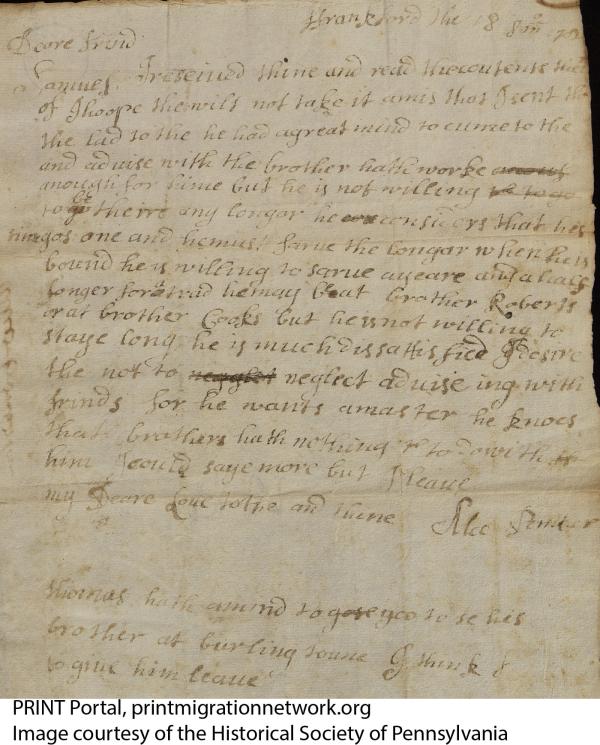 ffrankford the 18 8m
Deare frind
Samuel I reseived thine and read the contents
of I hoope the wilt not take it amis that I sent the
the lad to the he had a great mind to cume to the
and aduise with the brother hath worke
anough for hime but he is not willing
to go theire any longar he considers that his
time gos one and he must sarue the longar when he is
bound he is willing to sarue a yeare and a half
longer for a trad he may be at brother Roberts
or at brother Cooks but he is not willing to
staye long he is much dissattisfied I desire
the not to neglect aduise ing with
frinds for he wants a master he knoes
that brothers hath nothing to do with
him I could saye more but I leaue
my Deare Loue to the and thine Alce
thomas hath a mind to go to se his
brother at burling toune I think
to giue him leaue
PRINT Portal, printmigrationnetwork.org
Image courtesy of the Historical Society of Pennsylvania